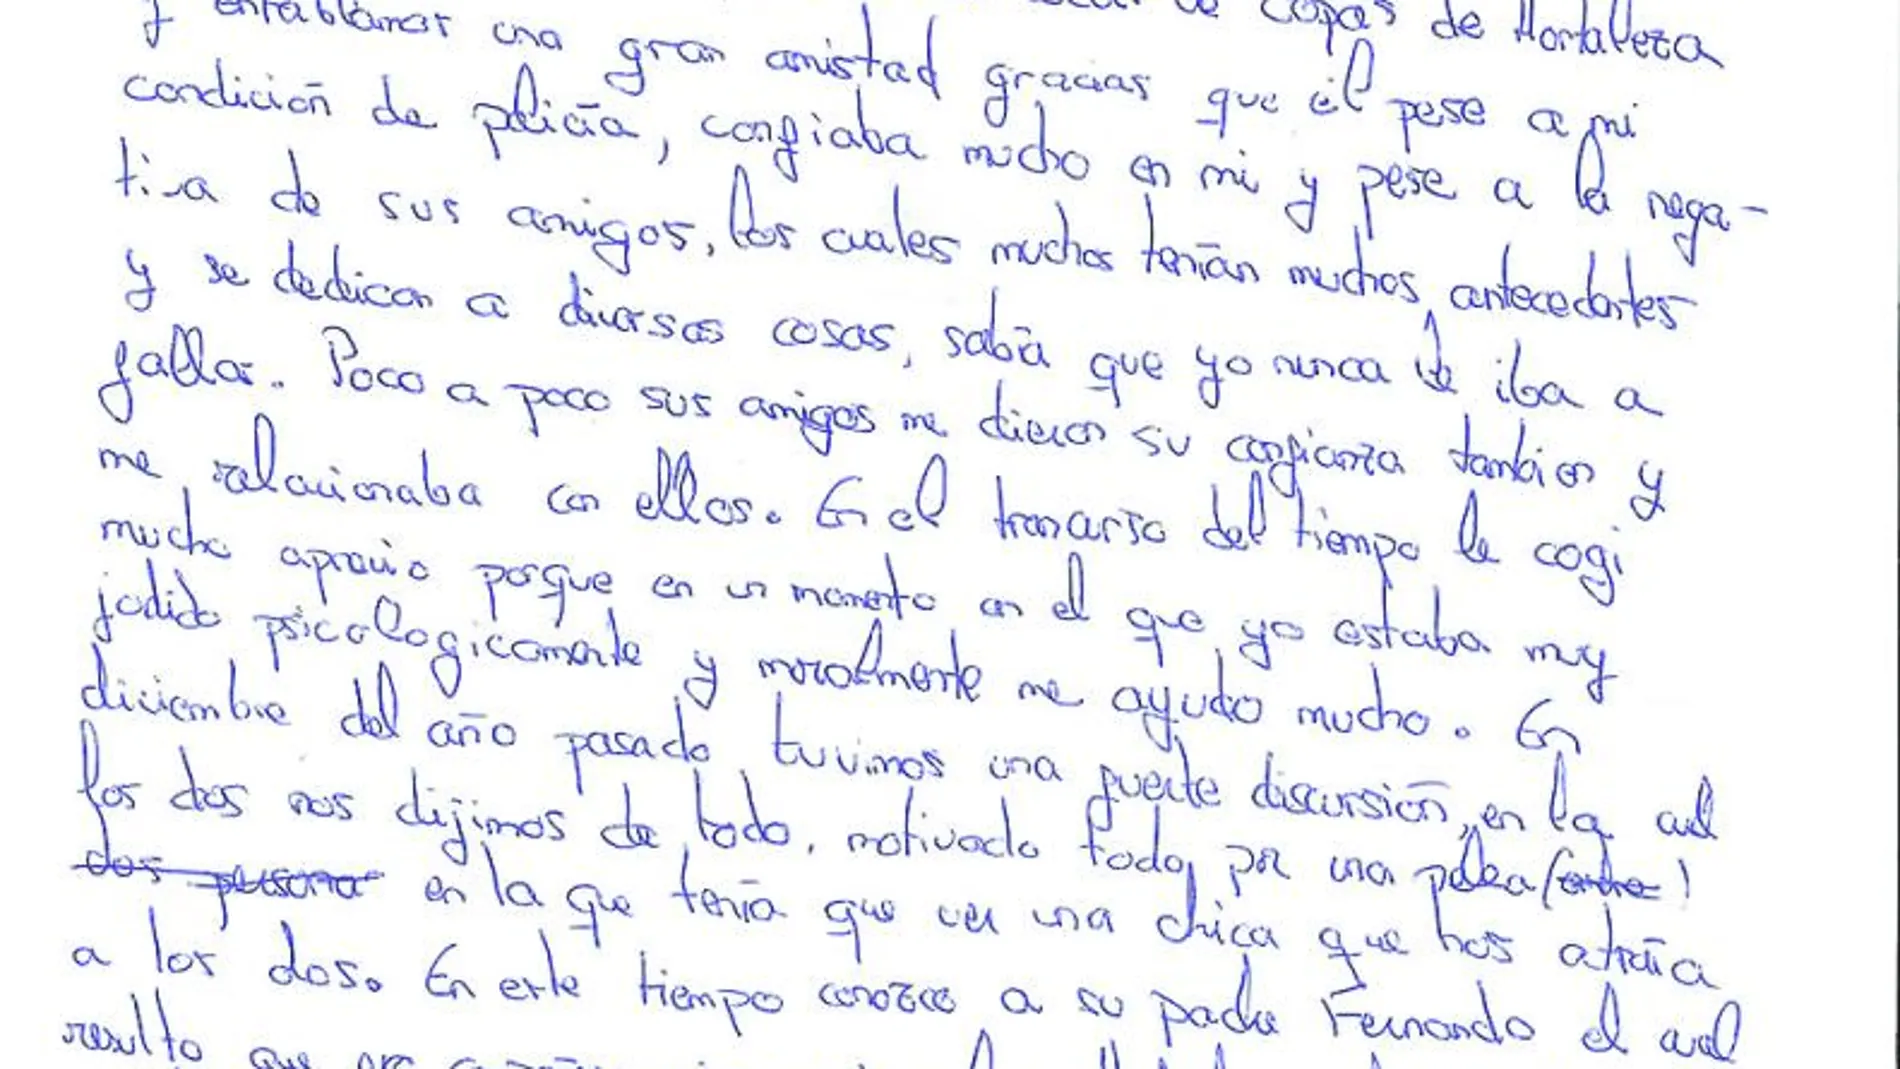 y entablamos una gran amistad gracias que él pese a mi
de copas de Hortaleza
condición de policía, confiaba mucho en mi y pese a la nega-
tiva de sus amigos, los cuales muchos tenían muchos antecedentes
y se dedican a diversas cosas, sabía que yo nunca le iba a
fallar. Poco a poco sus amigos me dieron su confianza tambien y
me relacionaba con ellos. En el trancurso del tiempo le cogi
mucho aprecio porque en un momento en el que yo estaba muy
jodido psicologicamente y moralmente me ayudo mucho. En
diciembre del año pasado tuvimos una fuerte discursión, en la cual
los dos nos dijimos de todo, motivado todo por una pelea (entre)
dos persona en la que tenía que ver una chica que nos atraía
a los dos. En este tiempo conozco a su padre Fernando el cual
resulto que